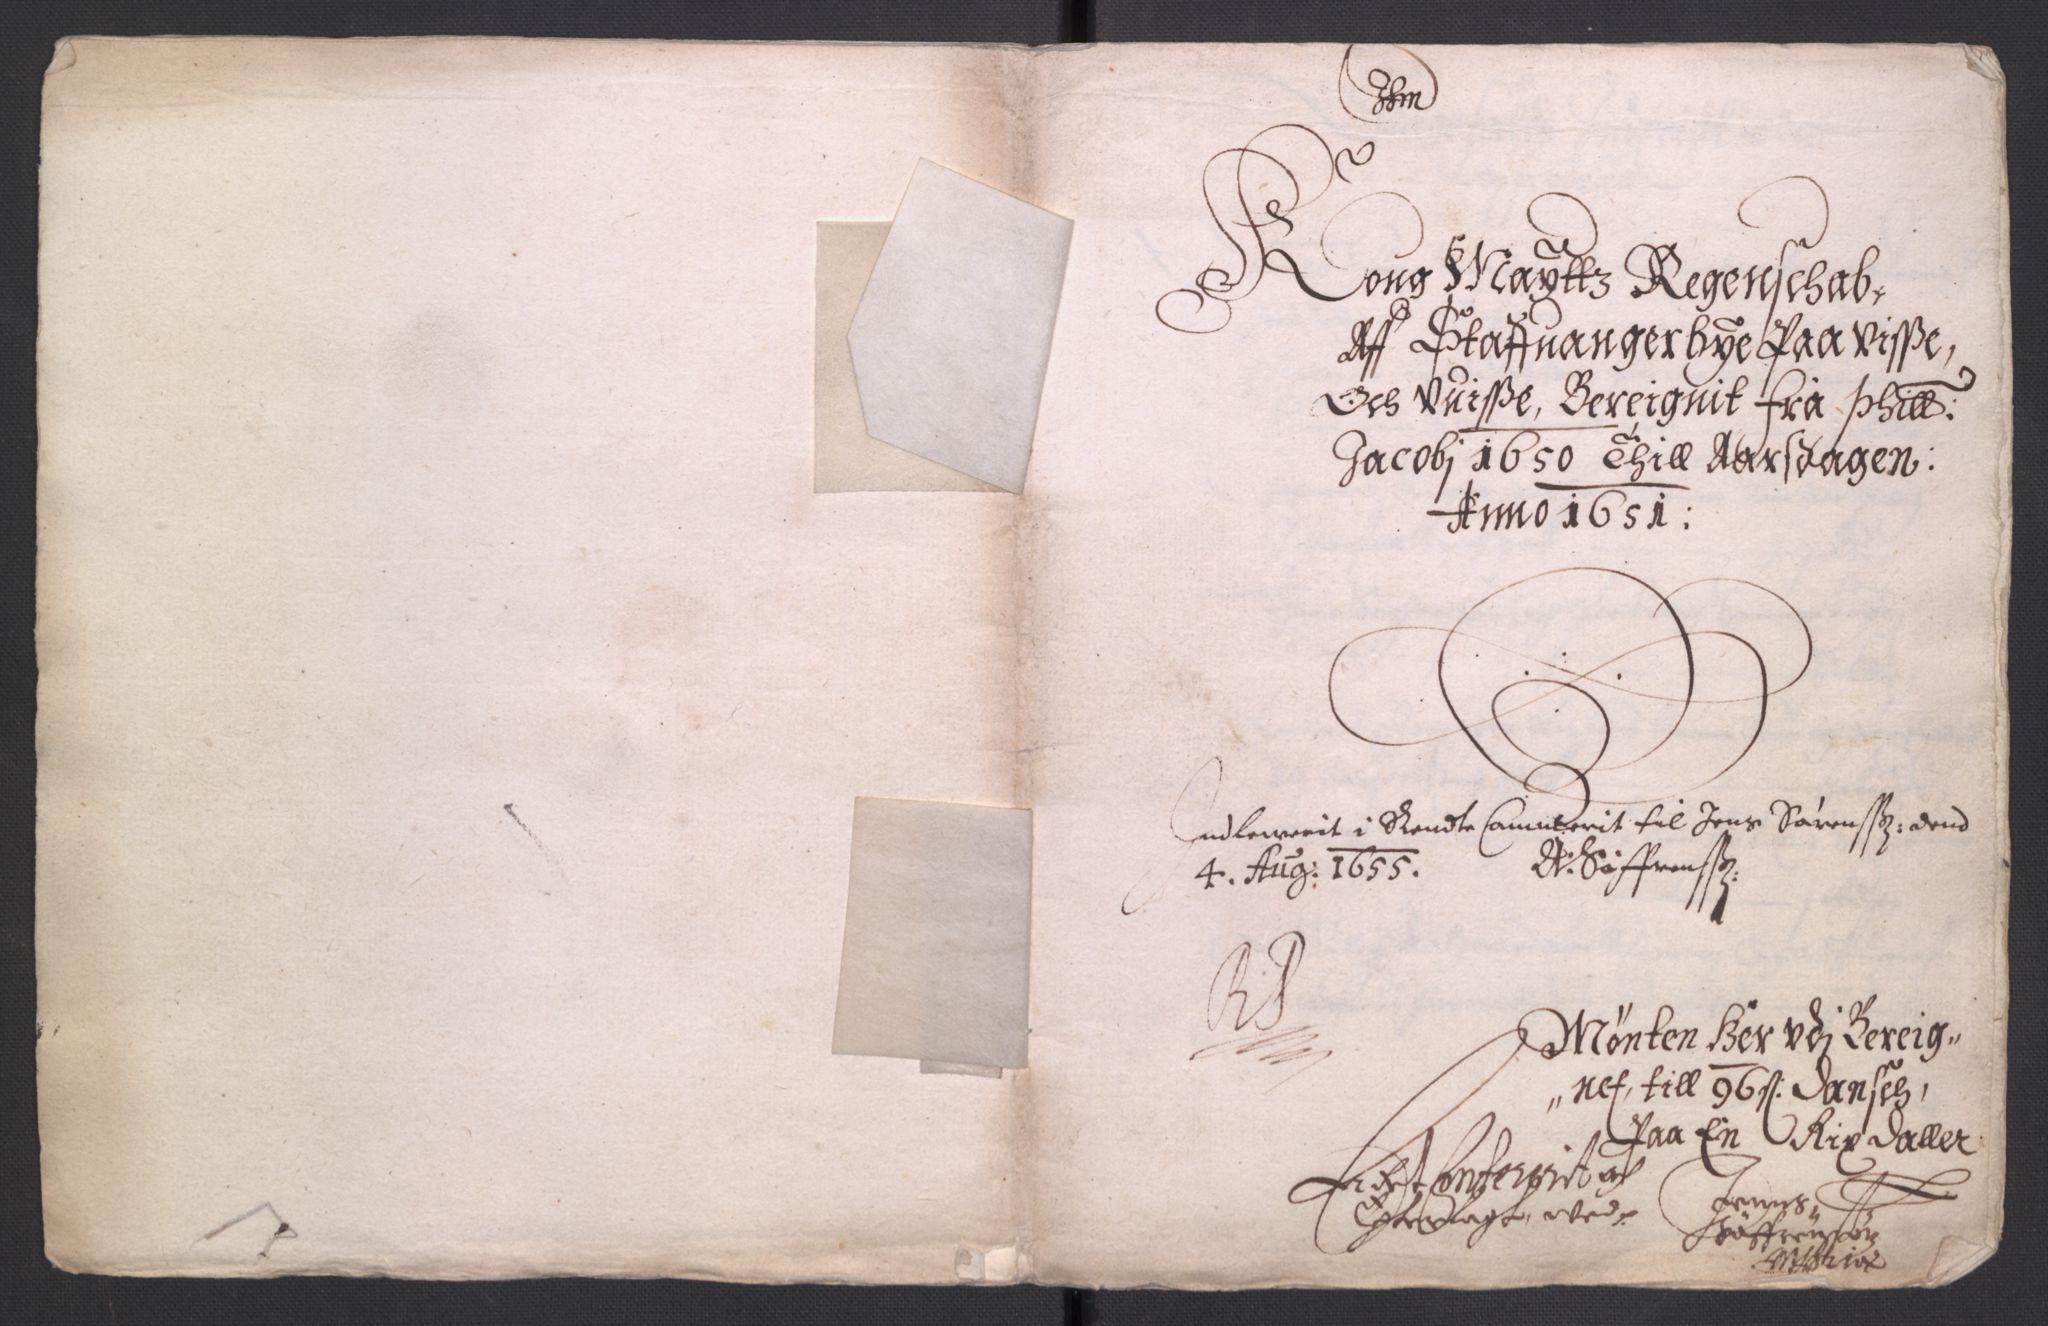 Kong Maÿttz Regenschab,
Aff Staffuanger bÿe Paa Visse,
Och Vuisse, Bereignit fra Phill:
Jacobj 1650 Thill Aarsdagen:
Anno 1651:
Indleverit i Rendte Cammerit til Jens Sørenssz: dend
4. Aug: 1655. A: Søffrenssz:
Mønten Her Vdj Bereig„
„net, till 96 sl. Dansch,
Paa En Rix Daller